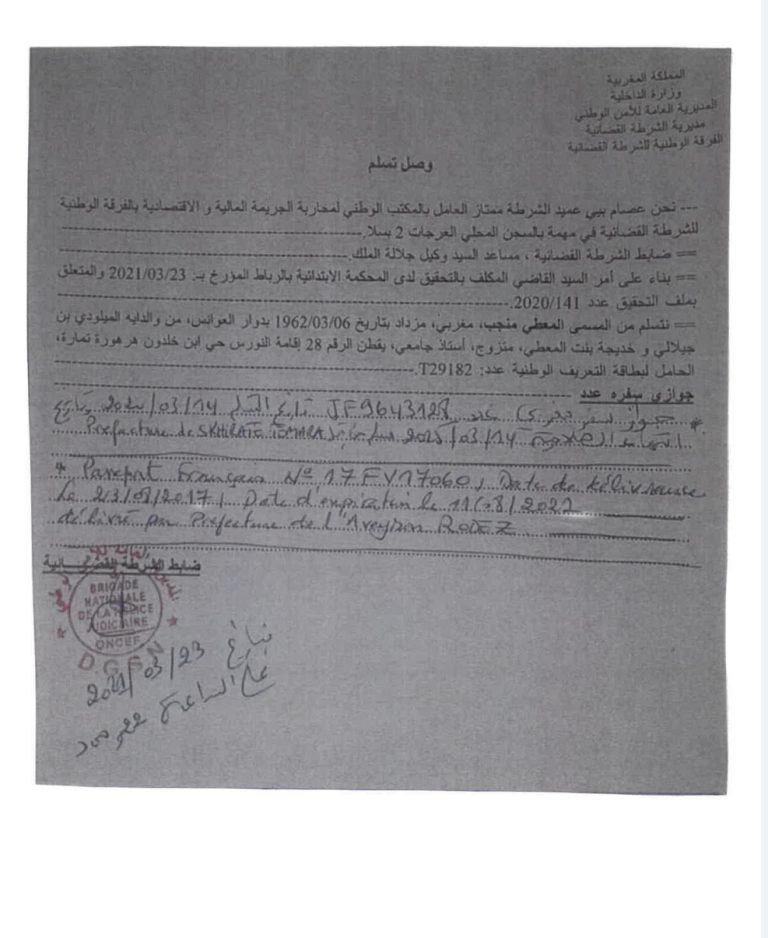 المملكة المغربية
وزارة الداخلية
المديرية العامة للأمن الوطني
مديرية الشرطة القضائية
الفرقة الوطنية للشرطة القضائية
وصل تسلم
--- نحن عصام بيبي عميد الشرطة ممتاز العامل بالمكتب الوطني لمحاربة الجريمة المالية و الاقتصادية بالفرقة الوطنية
للشرطة القضائية في مهمة بالسجن المحلي العرجات 2 بسلا.
== ضابط الشرطة القضائية ، مساعد السيد وكيل جلالة الملك.
== بناء على أمر السيد القاضي المكلف بالتحقيق لدى المحكمة الابتدائية بالرباط المؤرخ بـ: 2021/03/23 والمتعلق
بملف التحقيق عدد 2020/141.
== نتسلم من المسمى المعطي منجب، مغربي، مزداد بتاريخ 1962/03/06 بدوار العوانس، من والدايه الميلودي بن
جيلالي و خديجة بنت المعطي، متزوج، أستاذ جامعي، يقطن الرقم 28 إقامة النورس حي ابن خلدون هرهورة تمارة،
الحامل لبطاقة التعريف الوطنية عدد: T29182.
جوازي سفره عدد
* جواز سفر مغربي عدد JF9643128 تاريخ التسليم 2020/03/14 وتاريخ
2025/03/14 Prefecture de SKHIRATE TEMARA
* Passeport Français Nº 17FV17060, Date de délivrance
le 23/08/2017, Date d'expiration le 11/08/2027
délivré par Préfecture de l'Aveyron RODEZ
ضابط الشرطة القضـــائية
BRIGADE
NATIONALE
DE LA POLICE
JUDICIAIRE
ONCEF
DGSN
بتاريخ
2021/03/23
على الساعة